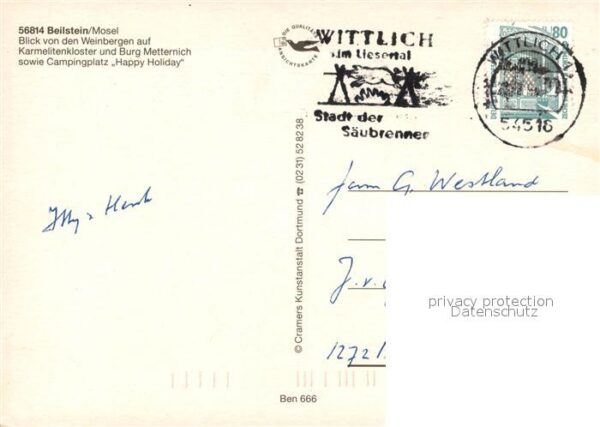 56814 Beilstein/Mosel
Blick von den Weinbergen auf
Karmelitenkloster und Burg Metternich
sowie Campingplatz „Happy Holiday“
DIE QUALITÄTS
ANSICHTSKARTE
WITTLICH
im Liesertal
Stadt der
Säubrenner
WITTLICH
54516
80
© Cramers Kunstanstalt Dortmund ☎ (0231) 528238
Fam G. Westland
J.v.
1272
privacy protection
Datenschutz
Ben 666